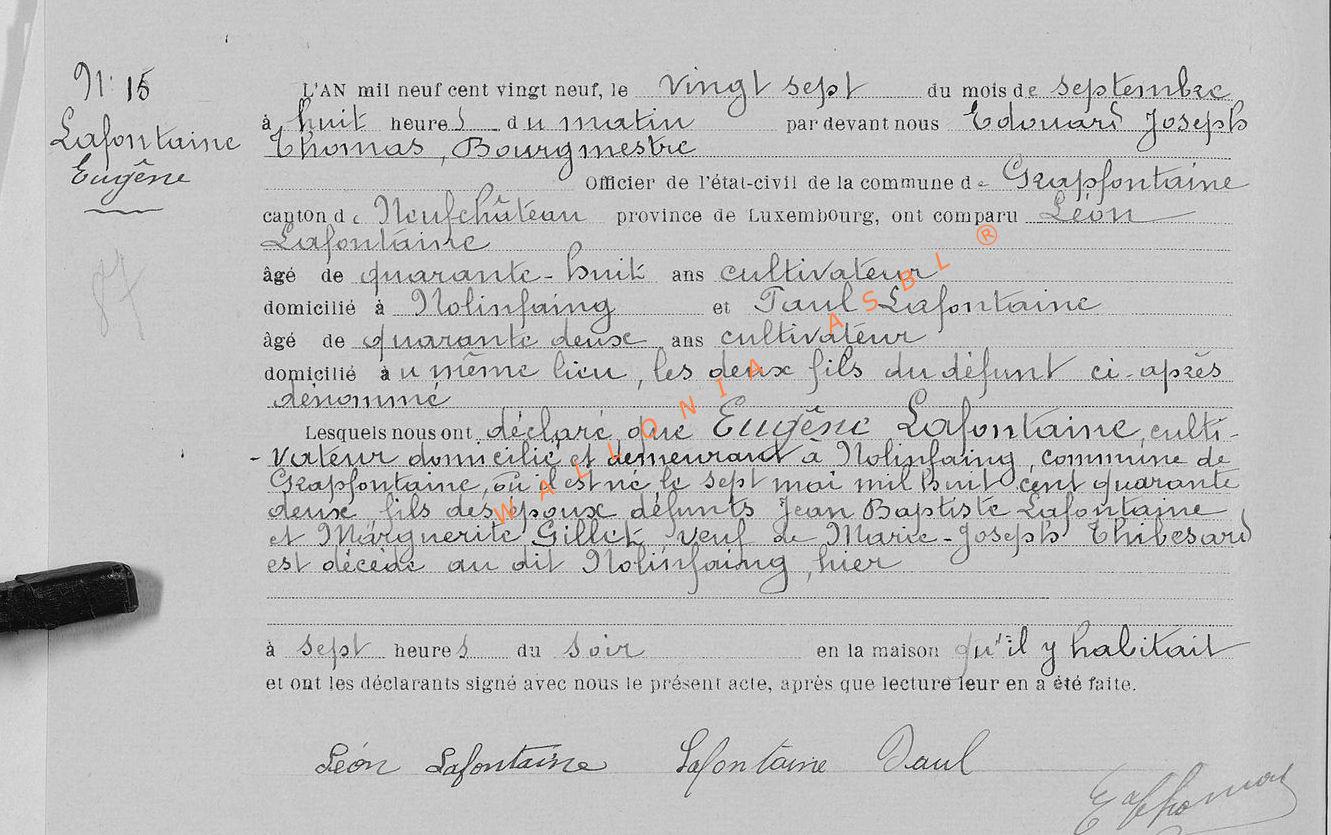 N° 15
Lafontaine
Eugène
87
L'AN mil neuf cent vingt neuf, le vingt sept du mois de septembre
à huit heures du matin par devant nous Edouard Joseph
Thomas, Bourgmestre
Officier de l'état-civil de la commune de Grapfontaine
canton de Neufchâteau province de Luxembourg, ont comparu Léon
Lafontaine
âgé de quarante-huit ans cultivateur
domicilié à Nolinfaing et Paul Lafontaine
âgé de quarante deux ans cultivateur
domicilié au même lieu, les deux fils du défunt ci-après
dénommé
Lesquels nous ont déclaré que Eugène Lafontaine, culti-
-vateur domicilié et demeurant à Nolinfaing, commune de
Grapfontaine, où il est né le sept mai mil huit cent quarante
deux fils des époux défunts Jean Baptiste Lafontaine
et Marguerite Gillet veuf de Marie-Joseph Thibesard
est décédé au dit Nolinfaing, hier
à sept heures du soir en la maison qu'il y habitait
et ont les déclarants signé avec nous le présent acte, après que lecture leur en a été faite.
Léon Lafontaine Lafontaine Paul
E Thomas
WALLONIA ASBL ®